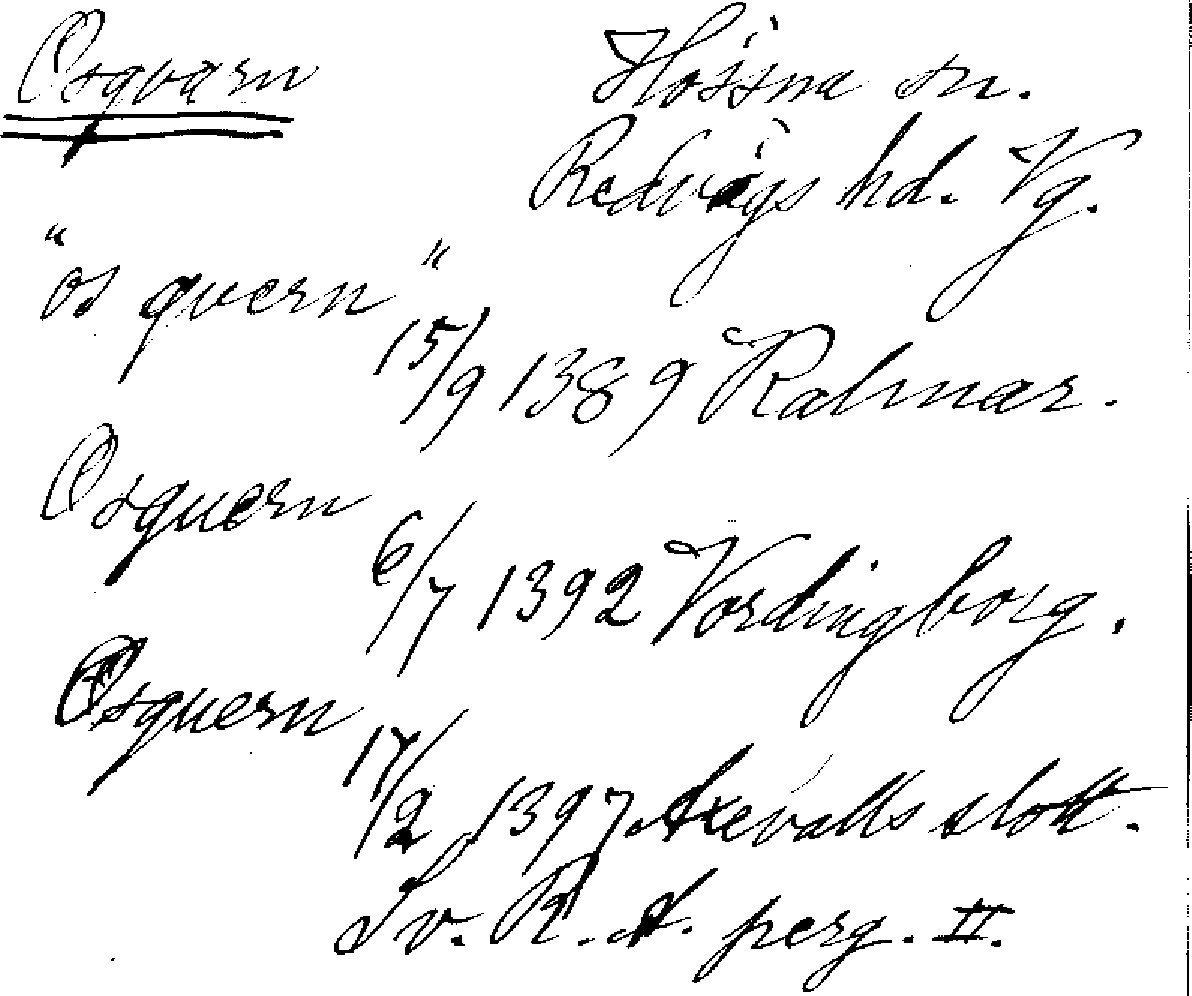 Osqvarn
Hössna sn.
Redvägs hd. Vg.
"os qvern"
15/9 1389 Kalmar.
Osquern
6/7 1392 Vordingborg.
Osquern
17/2 1397 Axevalls slott.
Sv. R. A. perg. II.